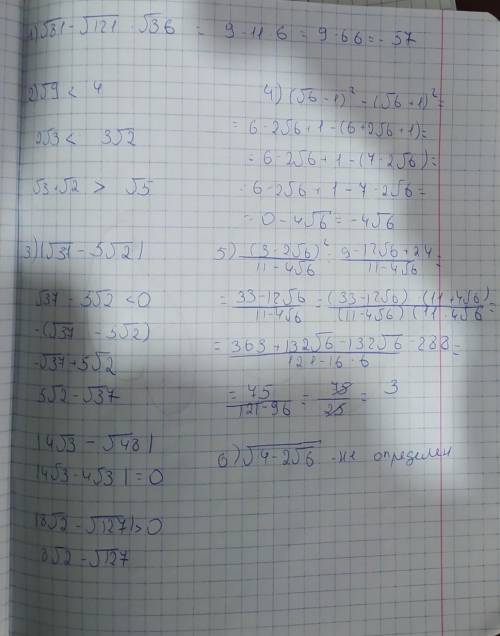 1) √81 - √121 · √36 = 9 - 11 · 6 = 9 - 66 = - 57
2) √9 < 4
2√3 < 3√2
√3 + √2 > √5
3) |√37 - 5√2|
√37 - 5√2 < 0
-(√37 - 5√2)
-√37 + 5√2
5√2 - √37
|4√3 - √48|
|4√3 - 4√3| = 0
|8√2 - √127| > 0
8√2 - √127
4) (√6 - 1)² - (√6 + 1)² =
= 6 - 2√6 + 1 - (6 + 2√6 + 1) =
= 6 - 2√6 + 1 - (7 - 2√6) =
= 6 - 2√6 + 1 - 7 - 2√6 =
= 0 - 4√6 = -4√6
5) (3 - 2√6)² / 11 - 4√6 = 9 - 12√6 + 24 / 11 - 4√6 =
= 33 - 12√6 / 11 - 4√6 = (33 - 12√6) · (11 + 4√6) / (11 - 4√6) · (11 + 4√6) =
= 363 + 132√6 - 132√6 - 288 / 121 - 16 · 6 =
= 75 / 121 - 96 = 75 / 25 = 3
6) √4 - 2√6 - не определен